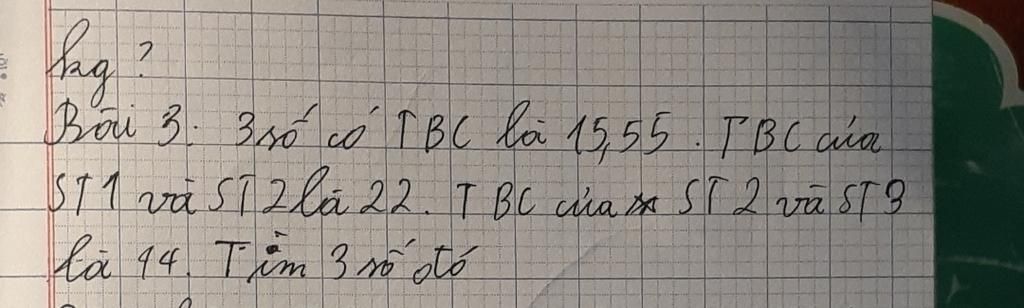 kg ?
Bài 3: 3 số có TBC là 15,55. TBC của
ST1 và ST2 là 22. TBC của ST2 và ST3
là 14. Tìm 3 số đó